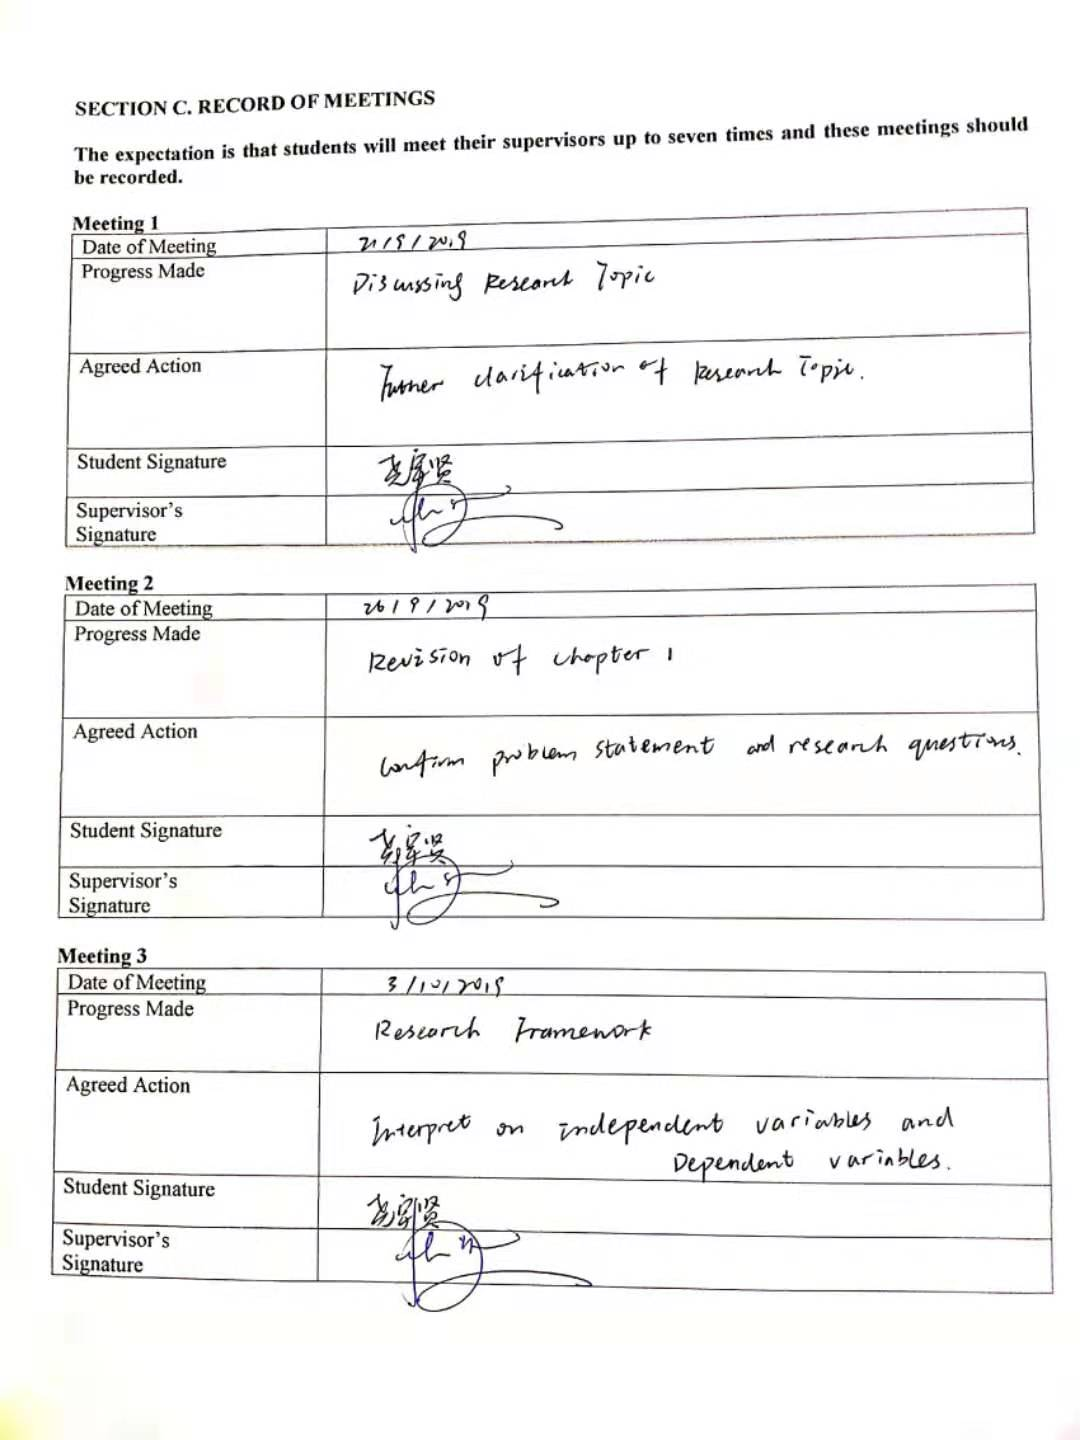 SECTION C. RECORD OF MEETINGS
The expectation is that students will meet their supervisors up to seven times and these meetings should
be recorded.
Meeting 1
Date of Meeting 21/9/2019
Progress Made Discussing Research Topic
Agreed Action Further clarification of Research Topic.
Student Signature
Supervisor's
Signature
Meeting 2
Date of Meeting 26/9/2019
Progress Made Revision of chapter 1
Agreed Action Confirm problem statement and research questions.
Student Signature
Supervisor's
Signature
Meeting 3
Date of Meeting 3/10/2019
Progress Made Research Framework
Agreed Action Interpret on independent variables and
Dependent variables.
Student Signature
Supervisor's
Signature